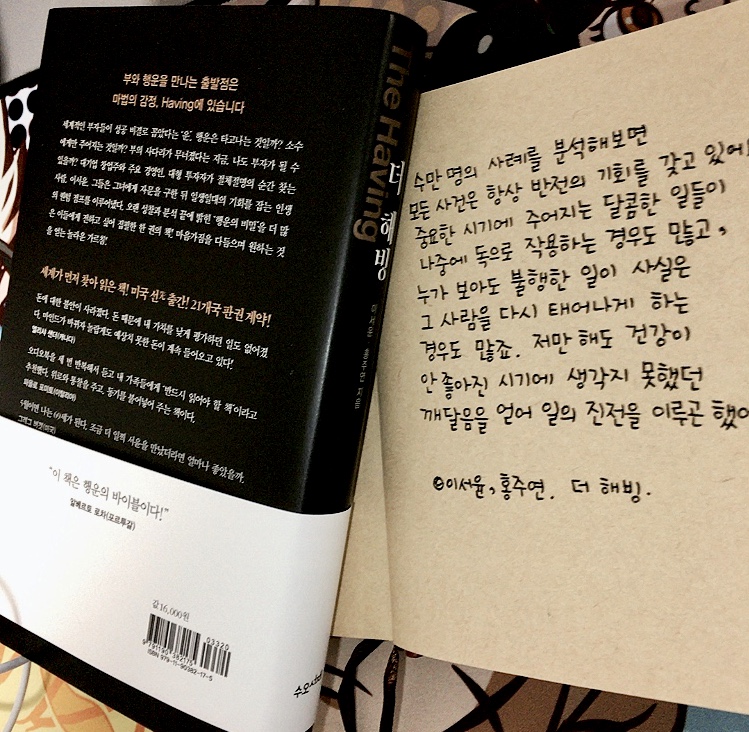 부와 행운을 만나는 출발점은
마법의 감정, Having에 있습니다
세계적인 부자들이 성공 비결로 꼽았다는 '운'. 행운은 타고나는 것일까? 소수
에게만 주어지는 것일까? 부의 사다리가 무너졌다는 지금, 나도 부자가 될 수
있을까? 대기업 창업주와 주요 경영인, 대형 투자자가 절체절명의 순간 찾는
사람, 이서윤. 그들은 그녀에게 자문을 구한 뒤 일생일대의 기회를 잡는 인생
의 반전 결과를 이루어냈다. 오랜 성찰과 분석 끝에 밝힌 '행운의 비밀'을 더 많
은 이들에게 전하고 싶어 집필한 한 권의 책! 마음가짐을 다듬으며 원하는 것
을 얻는 놀라운 가르침!
세계가 먼저 찾아 읽은 책! 미국 선출간! 21개국 판권 계약!
돈에 대한 불안이 사라졌다. 돈 때문에 내 가치를 낮게 평가하던 일도 없어졌
다. 마인드가 바뀌자 놀랍게도 예상치 못한 돈이 계속 들어오고 있다!
엘리사 센디(캐나다)
오디오북을 세 번 반복해서 듣고 내 가족들에게 '반드시 읽어야 할 책'이라고
추천했다. 위로와 통찰을 주고, 동기를 불어넣어 주는 책이다.
파올로 로미토(이탈리아)
4월이면 나는 69세가 된다. 조금 더 일찍 서윤을 만났더라면 얼마나 좋았을까.
"이 책은 행운의 바이블이다!"
알베르토 로차(포르투갈)
값 16,000원
03320
9 791190 382175
ISBN 979-11-90382-17-5
수오서재
The Having
더 해빙
수만 명의 사례를 분석해보면
모든 사건은 항상 반전의 기회를 갖고 있어요
중요한 시기에 주어지는 달콤한 일들이
나중에 독으로 작용하는 경우도 많고,
누가 보아도 불행한 일이 사실은
그 사람을 다시 태어나게 하는
경우도 많죠. 저만 해도 건강이
안 좋아진 시기에 생각지 못했던
깨달음을 얻어 일의 진전을 이루곤 했어
©이서윤, 홍주연. 더 해빙.